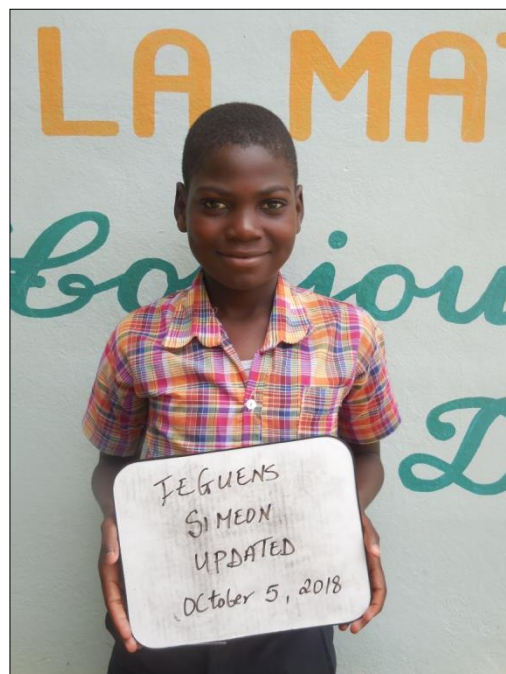 LA MA
bonjou
D
IEGUENS
SIMEON
UPDATED
October 5, 2018